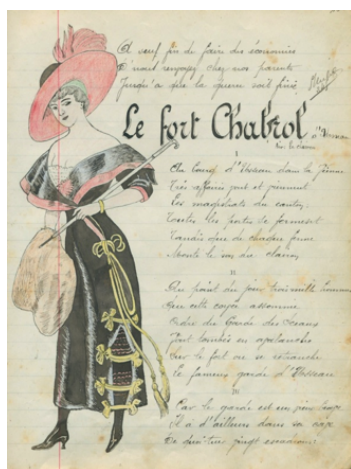 A seul fin de faire des économies
D'nous renvoyer chez nos parents
Jusqu'à que la guerre soit finie
Le fort Chabrol
I
Au bourg d'Usseau dans la
Très affairés vont et viennent
Les magistrats du canton,
Toutes les portes se ferment
Tandis que de chaque ferme
Monte le son du clairon
II
Au point du jour trois mille hommes
Que cette corvée assomme
Ordre du Garde des Sceaux
Sont tombés en avalanche
Sur le fort où se retranche
Le fameux garde d'Usseau
III
Car le garde est un
Il a d'ailleurs dans sa
De vingt escadrons